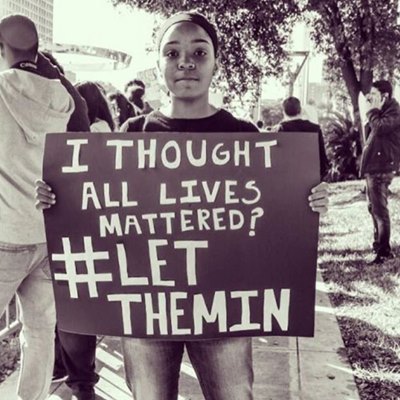 I THOUGHT
ALL LIVES
MATTERED?
#LET
THEMIN